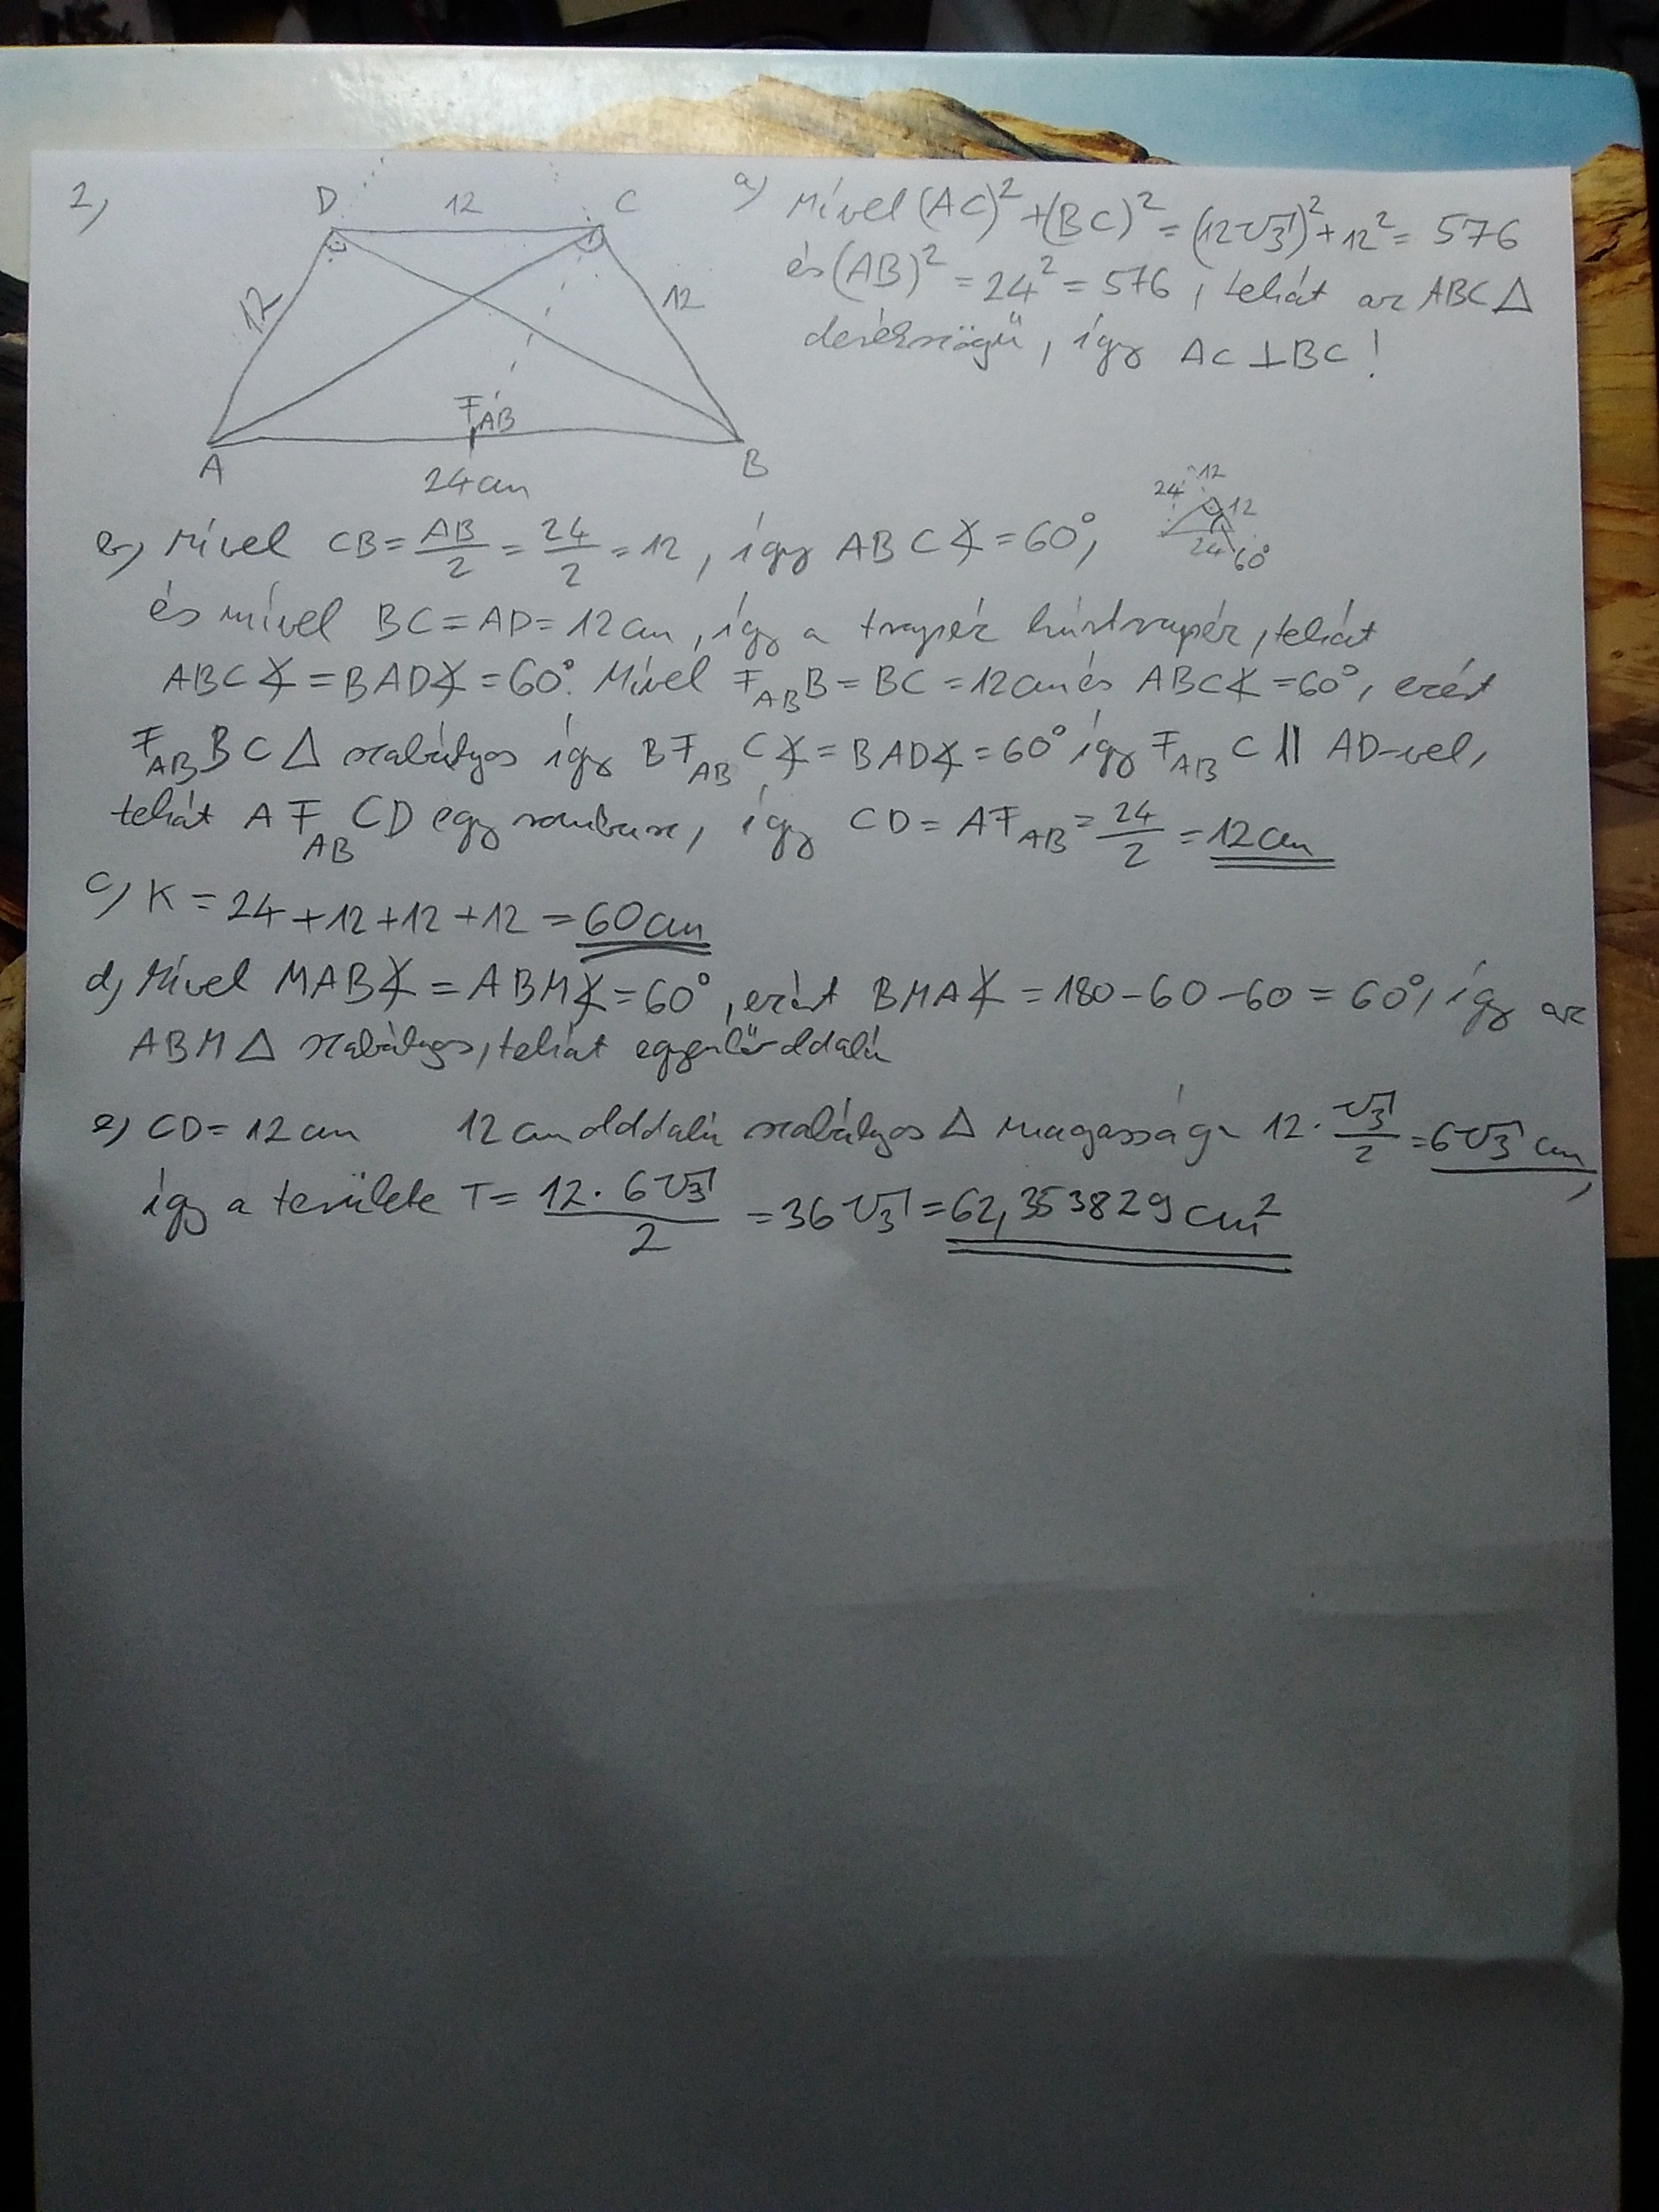 2,
D 12 C
12
12
F_AB
A B
24 cm
a) Mivel (AC)² + (BC)² = (12√3)² + 12² = 576
és (AB)² = 24² = 576, tehát az ABC△
derékszögű, így AC ⊥ BC!
b, Mivel CB = AB/2 = 24/2 = 12, így ABC∢ = 60°,
12
24 12
24 60°
és mivel BC = AD = 12 cm, így a trapéz húrtrapéz, tehát
ABC∢ = BAD∢ = 60°. Mivel F_AB B = BC = 12 cm és ABC∢ = 60°, ezért
F_AB BC△ szabályos így BF_AB C∢ = BAD∢ = 60° így F_AB C ∥ AD-vel,
tehát AF_AB CD egy rombusz, így CD = AF_AB = 24/2 = 12 cm
c, K = 24 + 12 + 12 + 12 = 60 cm
d, Mivel MAB∢ = ABM∢ = 60°, ezért BMA∢ = 180 - 60 - 60 = 60°, így az
ABM△ szabályos, tehát egyenlő oldalú
e, CD = 12 cm 12 cm oldalú szabályos △ magassága 12 · √3/2 = 6√3 cm,
így a területe T = 12 · 6√3/2 = 36√3 = 62,353829 cm²